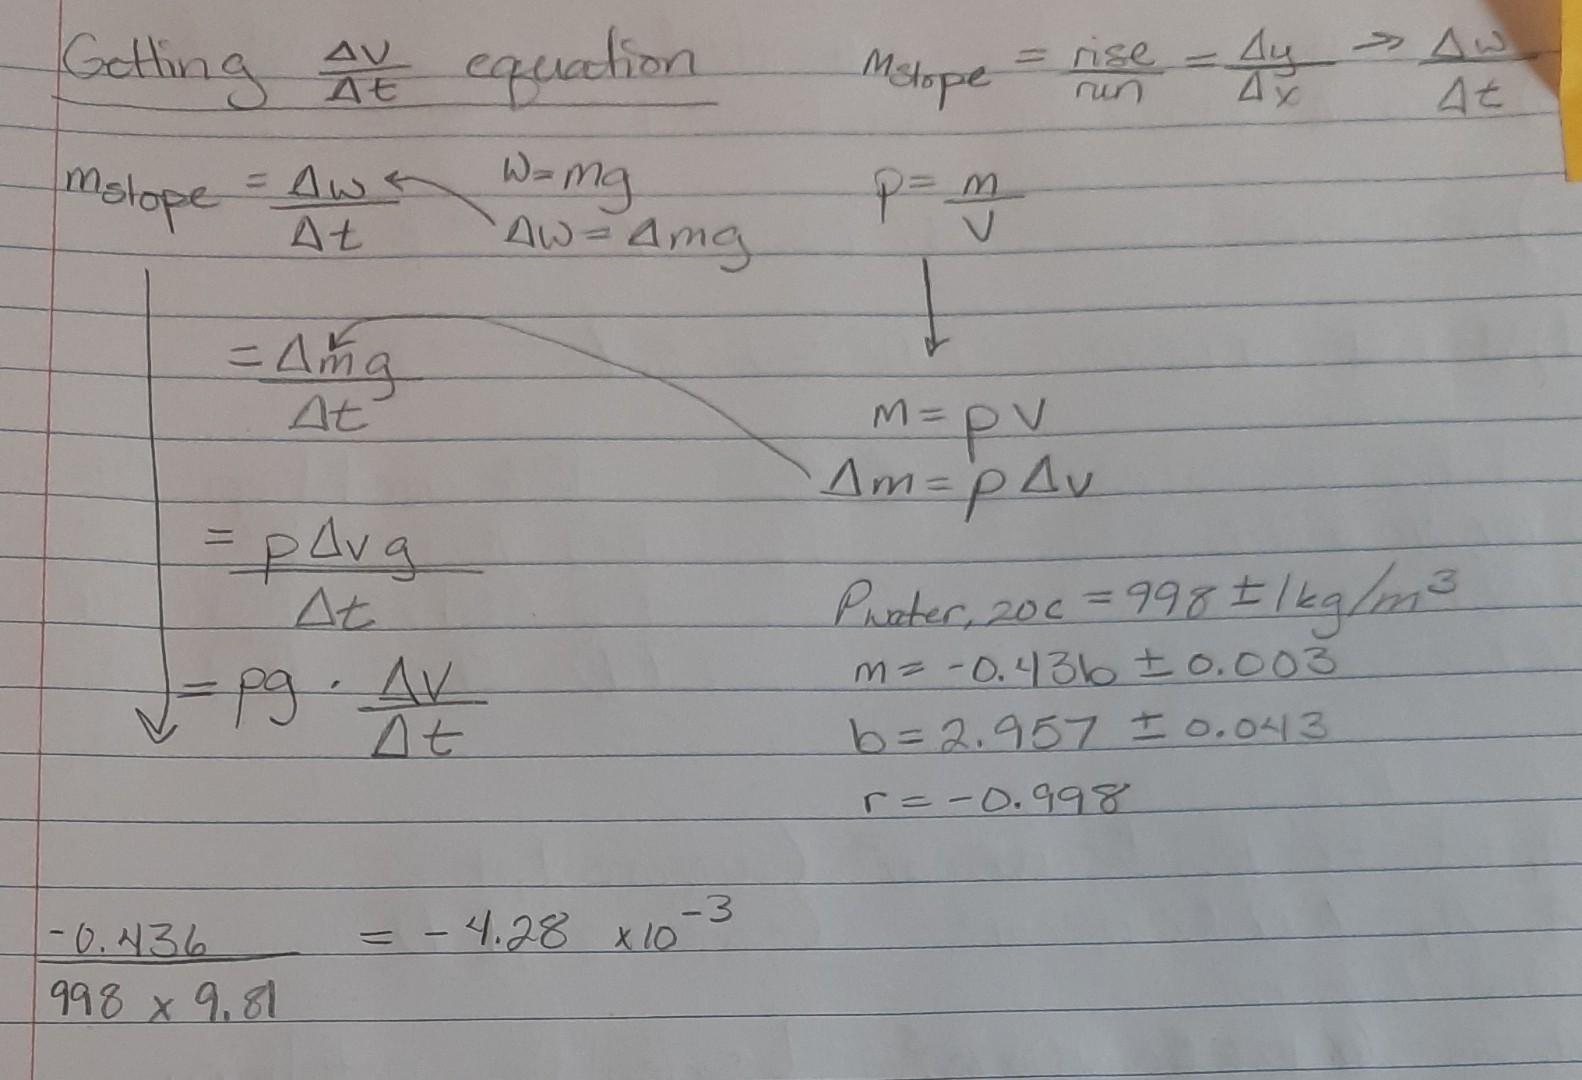 Getting ΔV/Δt equation
Mslope = rise/run = Δy/Δx → Δw/Δt
Mslope = Δw/Δt
W=mg
ΔW = Δmg
p = m/V
= Δmg/Δt
m = pV
Δm = pΔv
= pΔvg/Δt
= pg · ΔV/Δt
Pwater, 20c = 998 ± 1kg/m³
m = -0.436 ± 0.003
b = 2.957 ± 0.043
r = -0.998
-0.436/998 x 9.81 = -4.28 x10⁻³